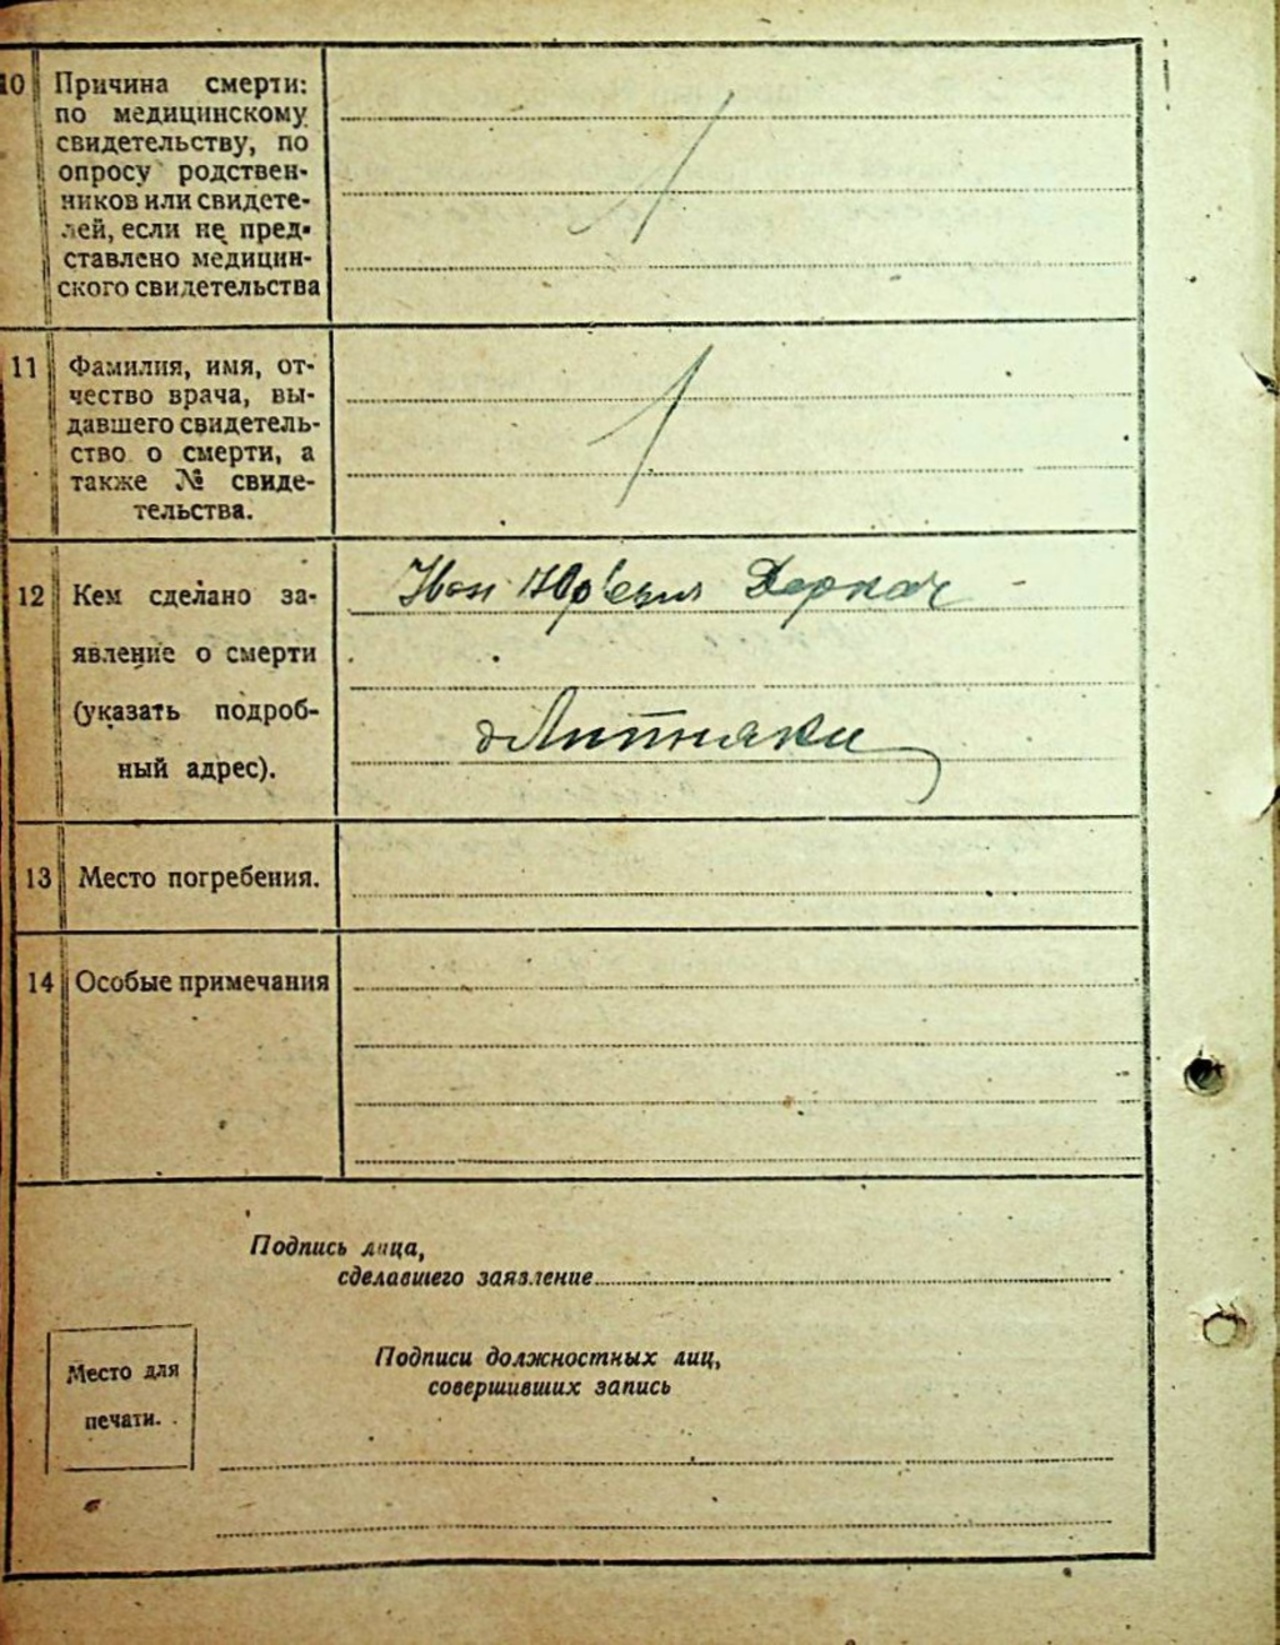 10 Причина смерти:
по медицинскому
свидетельству, по
опросу родствен-
ников или свидете-
лей, если не пред-
ставлено медицин-
ского свидетельства
11 Фамилия, имя, от-
чество врача, вы-
давшего свидетель-
ство о смерти, а
также № свиде-
тельства.
12 Кем сделано за-
явление о смерти
(указать подроб-
ный адрес).
Деркач
Липняки
13 Место погребения.
14 Особые примечания
Подпись лица,
сделавшего заявление
Подписи должностных лиц,
совершивших запись
Место для
печати.